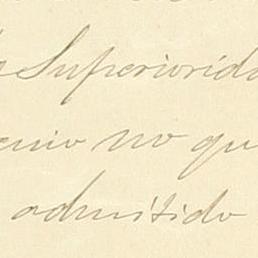 Superiorida
no qu
admitido